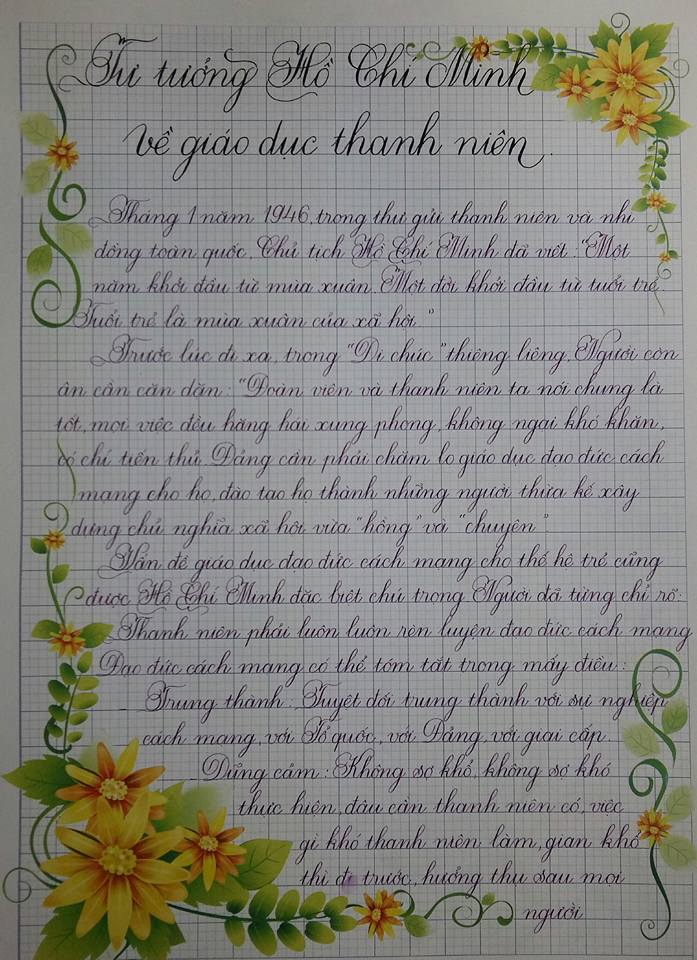 Tư tưởng Hồ Chí Minh
về giáo dục thanh niên.
Tháng 1 năm 1946, trong thư gửi thanh niên và nhi
đồng toàn quốc, Chủ tịch Hồ Chí Minh đã viết: "Một
năm khởi đầu từ mùa xuân. Một đời khởi đầu từ tuổi trẻ.
Tuổi trẻ là mùa xuân của xã hội"
Trước lúc đi xa, trong "Di chúc" thiêng liêng, Người còn
ân cần căn dặn: "Đoàn viên và thanh niên ta nói chung là
tốt, mọi việc đều hăng hái xung phong, không ngại khó khăn,
có chí tiến thủ. Đảng cần phải chăm lo giáo dục đạo đức cách
mạng cho họ, đào tạo họ thành những người thừa kế xây
dựng chủ nghĩa xã hội vừa "hồng" và "chuyên"
Vấn đề giáo dục đạo đức cách mạng cho thế hệ trẻ cũng
được Hồ Chí Minh đặc biệt chú trọng. Người đã từng chỉ rõ:
Thanh niên phải luôn luôn rèn luyện đạo đức cách mạng
Đạo đức cách mạng có thể tóm tắt trong mấy điều:
Trung thành: Tuyệt đối trung thành với sự nghiệp
cách mạng, với Tổ quốc, với Đảng, với giai cấp.
Dũng cảm: Không sợ khổ, không sợ khó
thực hiện, đâu cần thanh niên có, việc
gì khó thanh niên làm, gian khổ
thì đi trước, hưởng thụ sau mọi
người